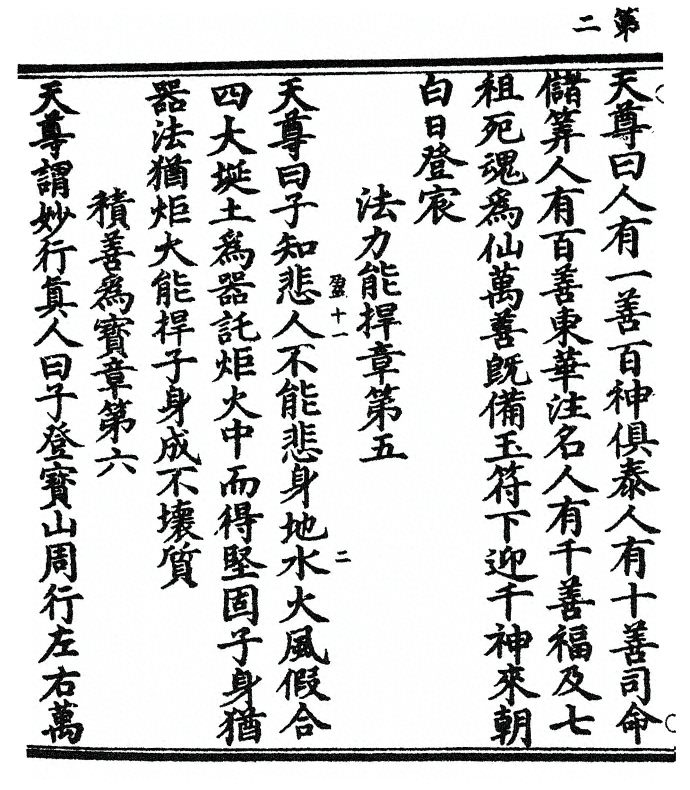 第二
天尊曰人有一善百神俱泰人有十善司命
儲筭人有百善東華注名人有千善福及七
祖死魂爲仙萬善既備玉符下迎千神來朝
白日登宸
法力能捍章第五
盈十一
二
天尊曰子知悲人不能悲身地水火風假合
四大埏土爲器託炬火中而得堅固子身猶
器法猶炬火能捍子身成不壞質
積善爲寶章第六
天尊謂妙行眞人曰子登寶山周行左右萬